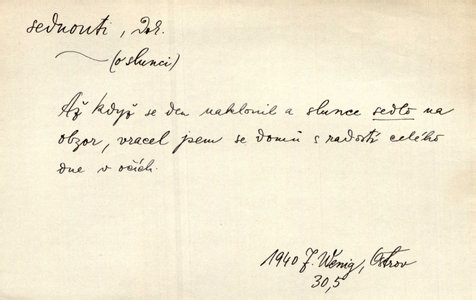 sednouti, Dok.
(o slunci)
Až když se den naklonil a slunce sedlo na
obzor, vracel jsem se domů s radostí celého
dne v očích.
1940 J. Wenig, Ostrov
30,5